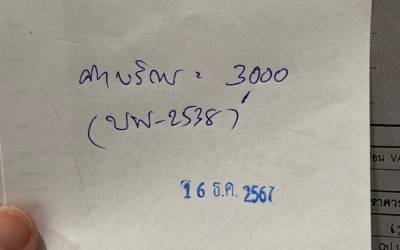 ค่าบริการ = 3000
(บพ-2538)
16 ธ.ค. 2567
อน VA
ราคาร